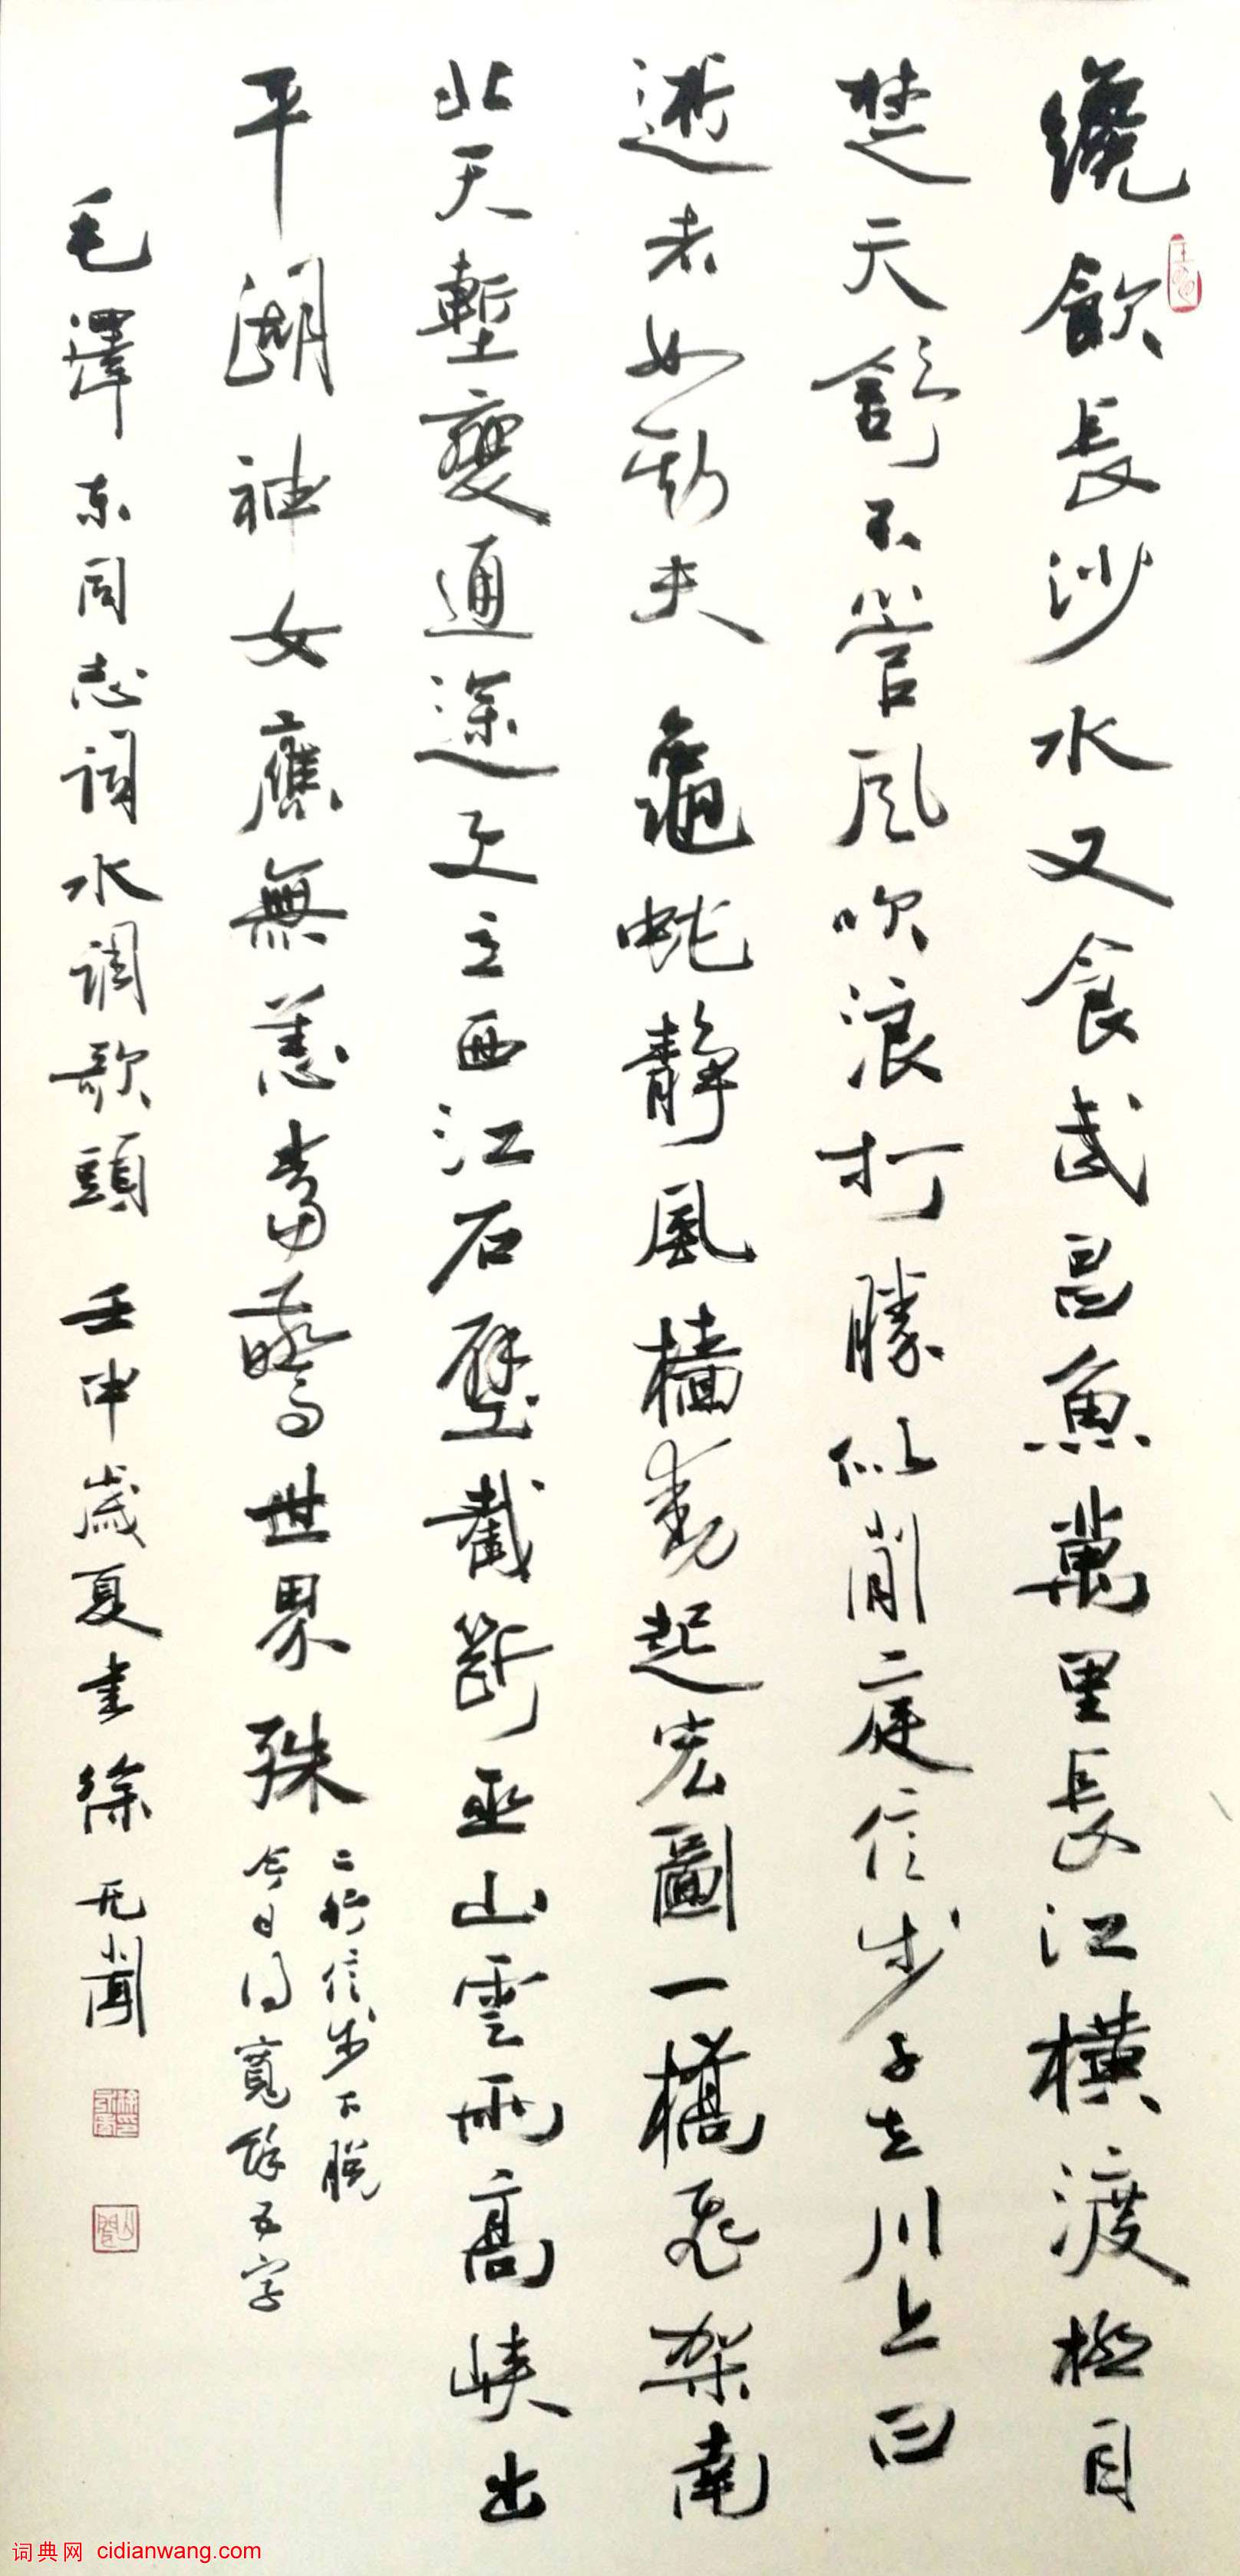 纔飲長沙水又食武昌魚萬里長江橫渡極目
楚天舒不管風吹浪打勝似閒庭信步子在川上曰
逝者如斯夫 龜蛇靜風檣動起宏圖一橋飛架南
北天塹變通途更立西江石壁截斷巫山雲雨高峽出
平湖神女應無恙當驚世界殊
二行信步下脫
今日得寬餘五字
毛澤东同志詞水調歌頭 壬申歲夏書徐无聞
词典网 cidianwang.com